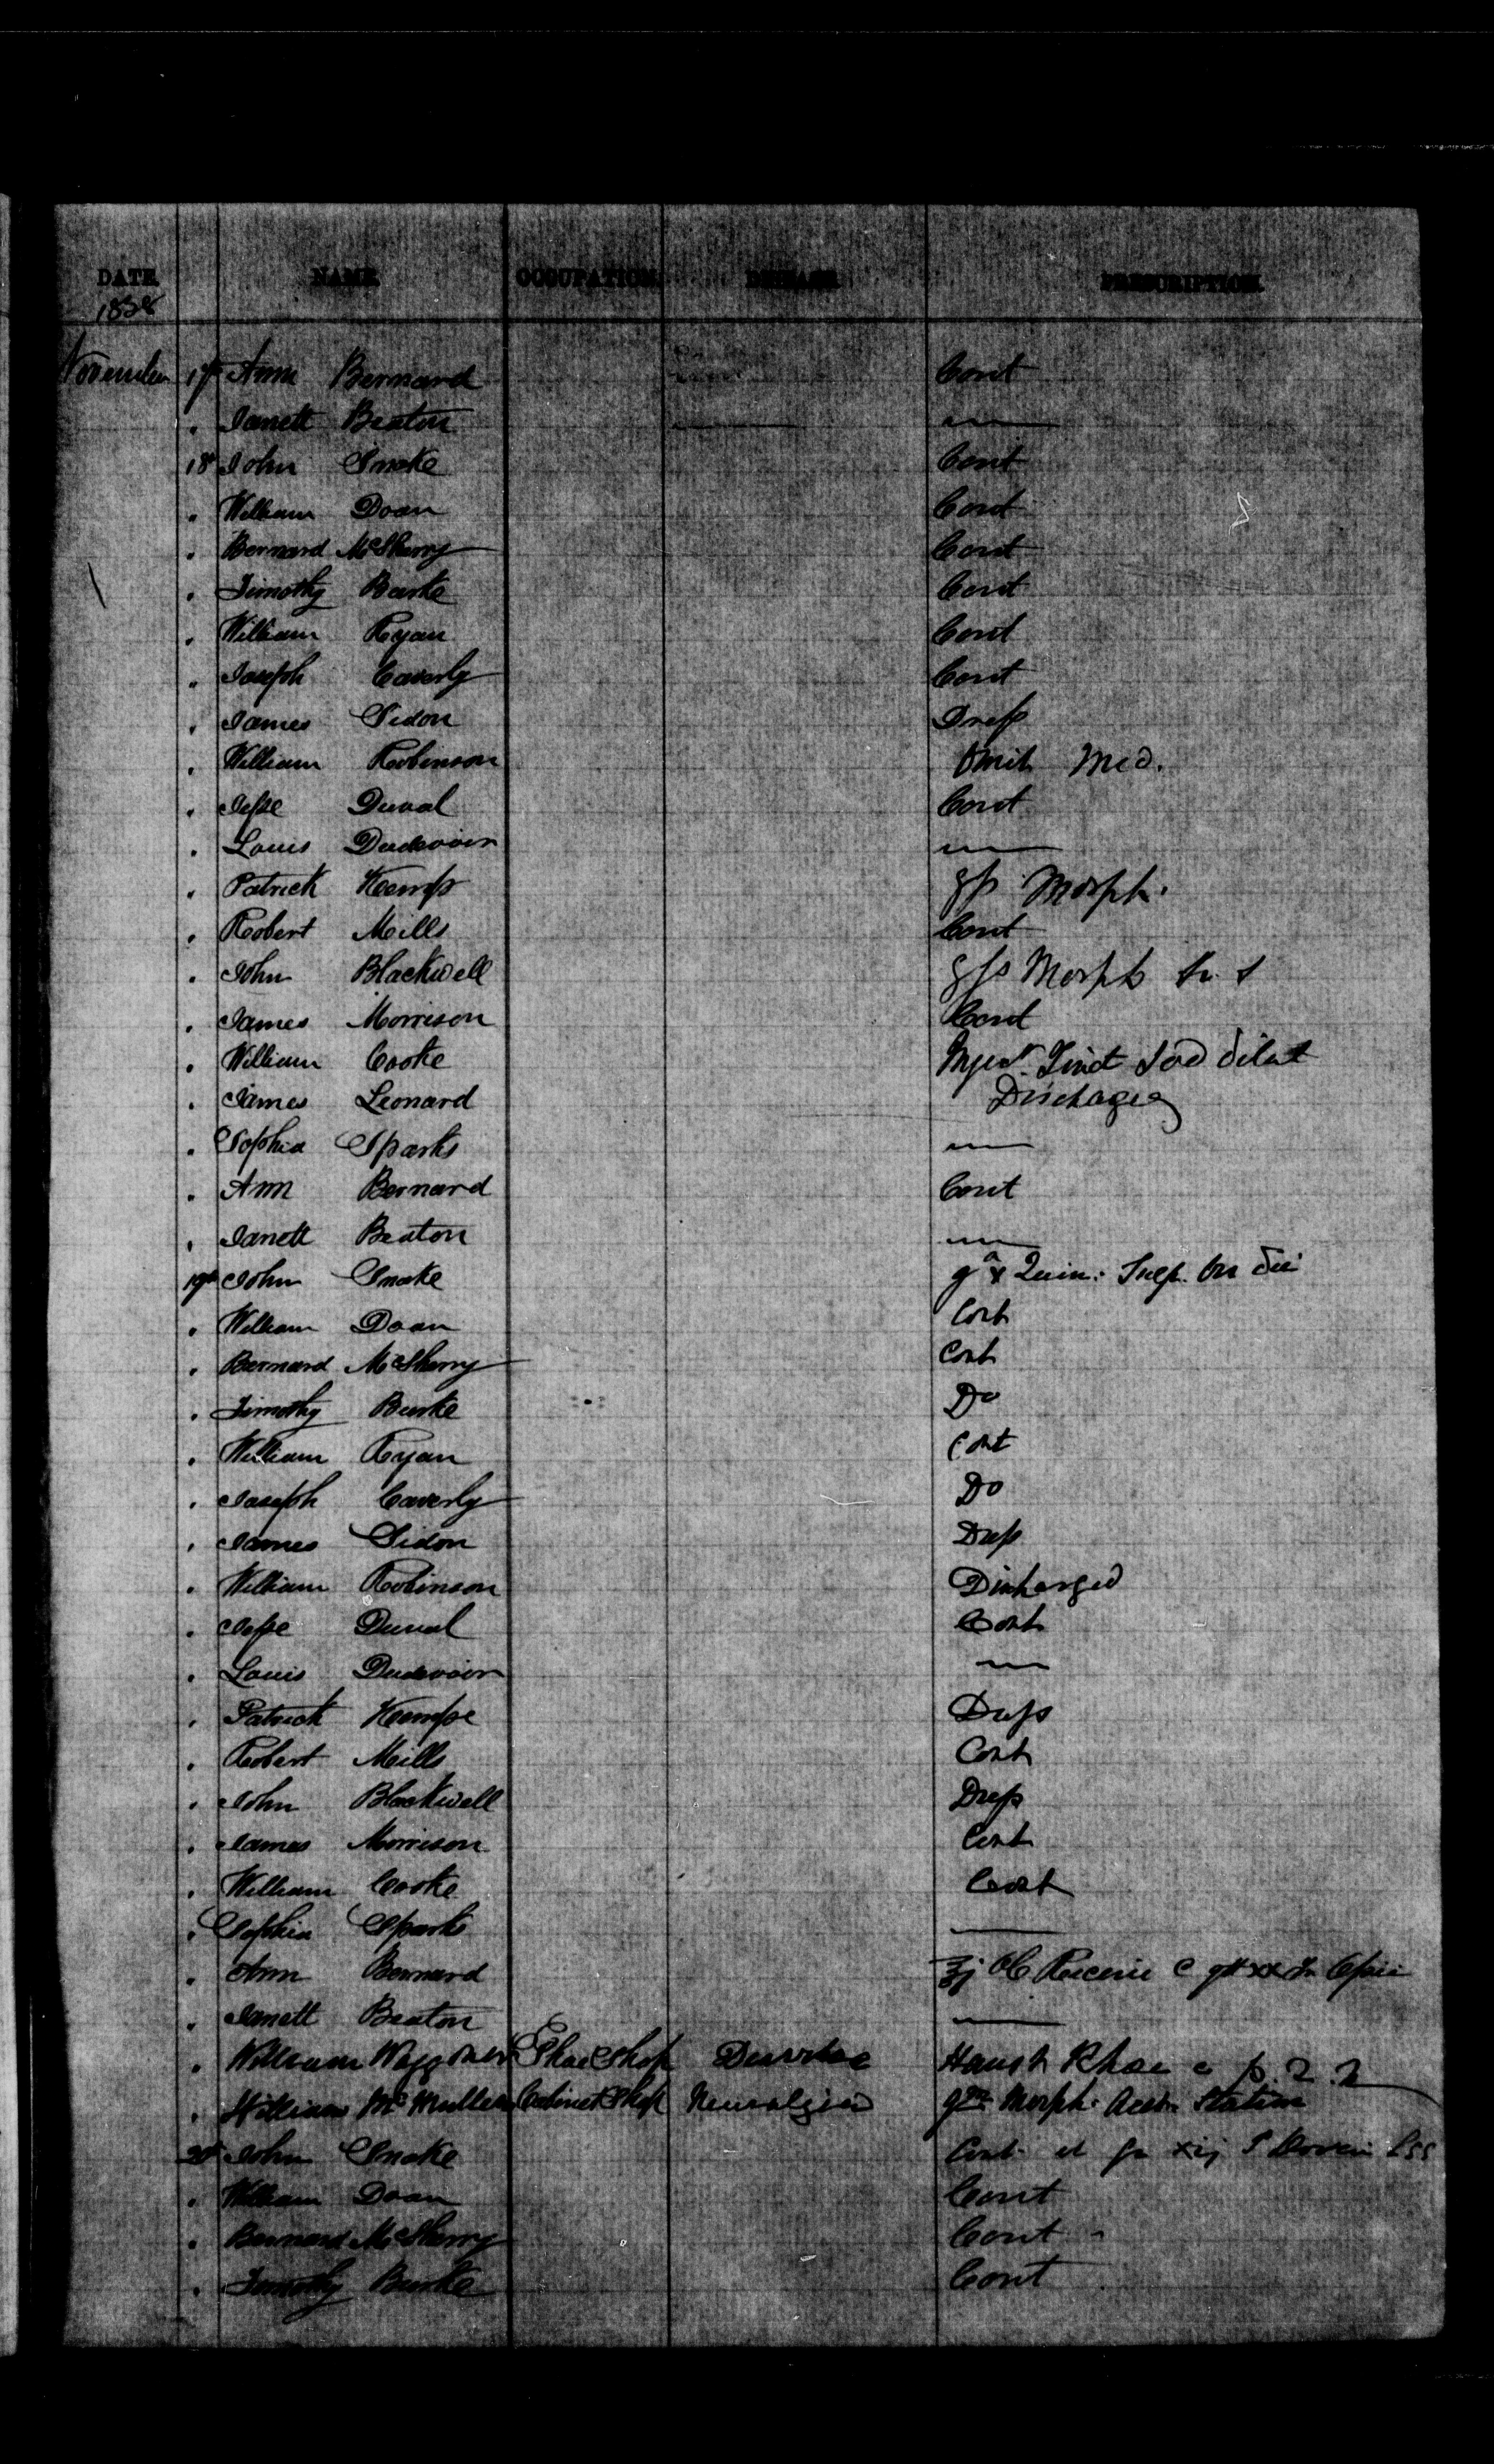 DATE NAME OCCUPATION DISEASE PRESCRIPTION
1858
November 17th Ann Bernard Cont
" Janett Beaton —
18th John Snake Cont
" William Doan Cont
" Bernard McSherry Cont
" Timothy Burke Cont
" William Ryan Cont
" Joseph Caverly Cont
" James Sidon Dress
" William Robinson Omit Med.
" Jesse Duval Cont
" Louis —
" Patrick Kemp Morph.
" Robert Mills Cont
" John Blackwell Morph
" James Morrison Cont
" William Cooke Inject. Tinct Iod dilut
" James Leonard Discharged
" Sophia Sparks —
" Ann Bernard Cont
" Janett Beaton —
19th John Snake Quin: Sulp.
" William Doan Cont
" Bernard McSherry Cont
" Timothy Burke Do
" William Ryan Cont
" Joseph Caverly Do
" James Sidon Dress
" William Robinson Discharged
" Jesse Duval Cont
" Louis —
" Patrick Kempe Dress
" Robert Mills Cont
" John Blackwell Dress
" James Morrison Cont
" William Cooke Cont
" Sophia Sparks —
" Ann Bernard Opii
" Janett Beaton —
" William Waggoner Shoe Shop Haust
" William McMullen Cabinet Shop Neuralgia Morph. Statim
20th John Snake Cont
" William Doan Cont
" Bernard McSherry Cont
" Timothy Burke Cont